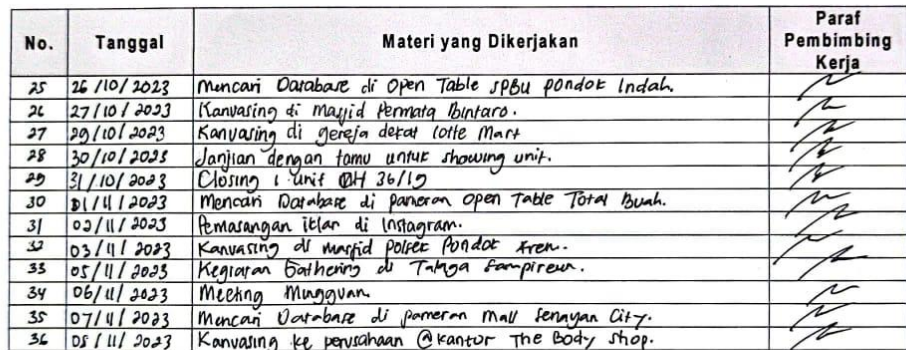 No. Tanggal Materi yang Dikerjakan Paraf Pembimbing Kerja
25 26/10/2023 Mencari Database di Open Table SPBU Pondok Indah.
26 27/10/2023 Kanvasing di Masjid Permata Bintaro.
27 29/10/2023 Kanvasing di gereja dekat lotte Mart
28 30/10/2023 Janjian dengan tamu untuk showing unit.
29 31/10/2023 Closing 1 unit 36/19
30 01/11/2023 Mencari Database di pameran open Table Total Buah.
31 02/11/2023 Pemasangan iklan di Instagram.
32 03/11/2023 Kanvasing di masjid polsek Pondok Aren.
33 05/11/2023 Kegiatan Gathering di Talaga Sampireun.
34 06/11/2023 Meeting Mingguan.
35 07/11/2023 Mencari Database di pameran Mall Senayan City.
36 08/11/2023 Kanvasing ke perusahaan @kantor The Body shop.